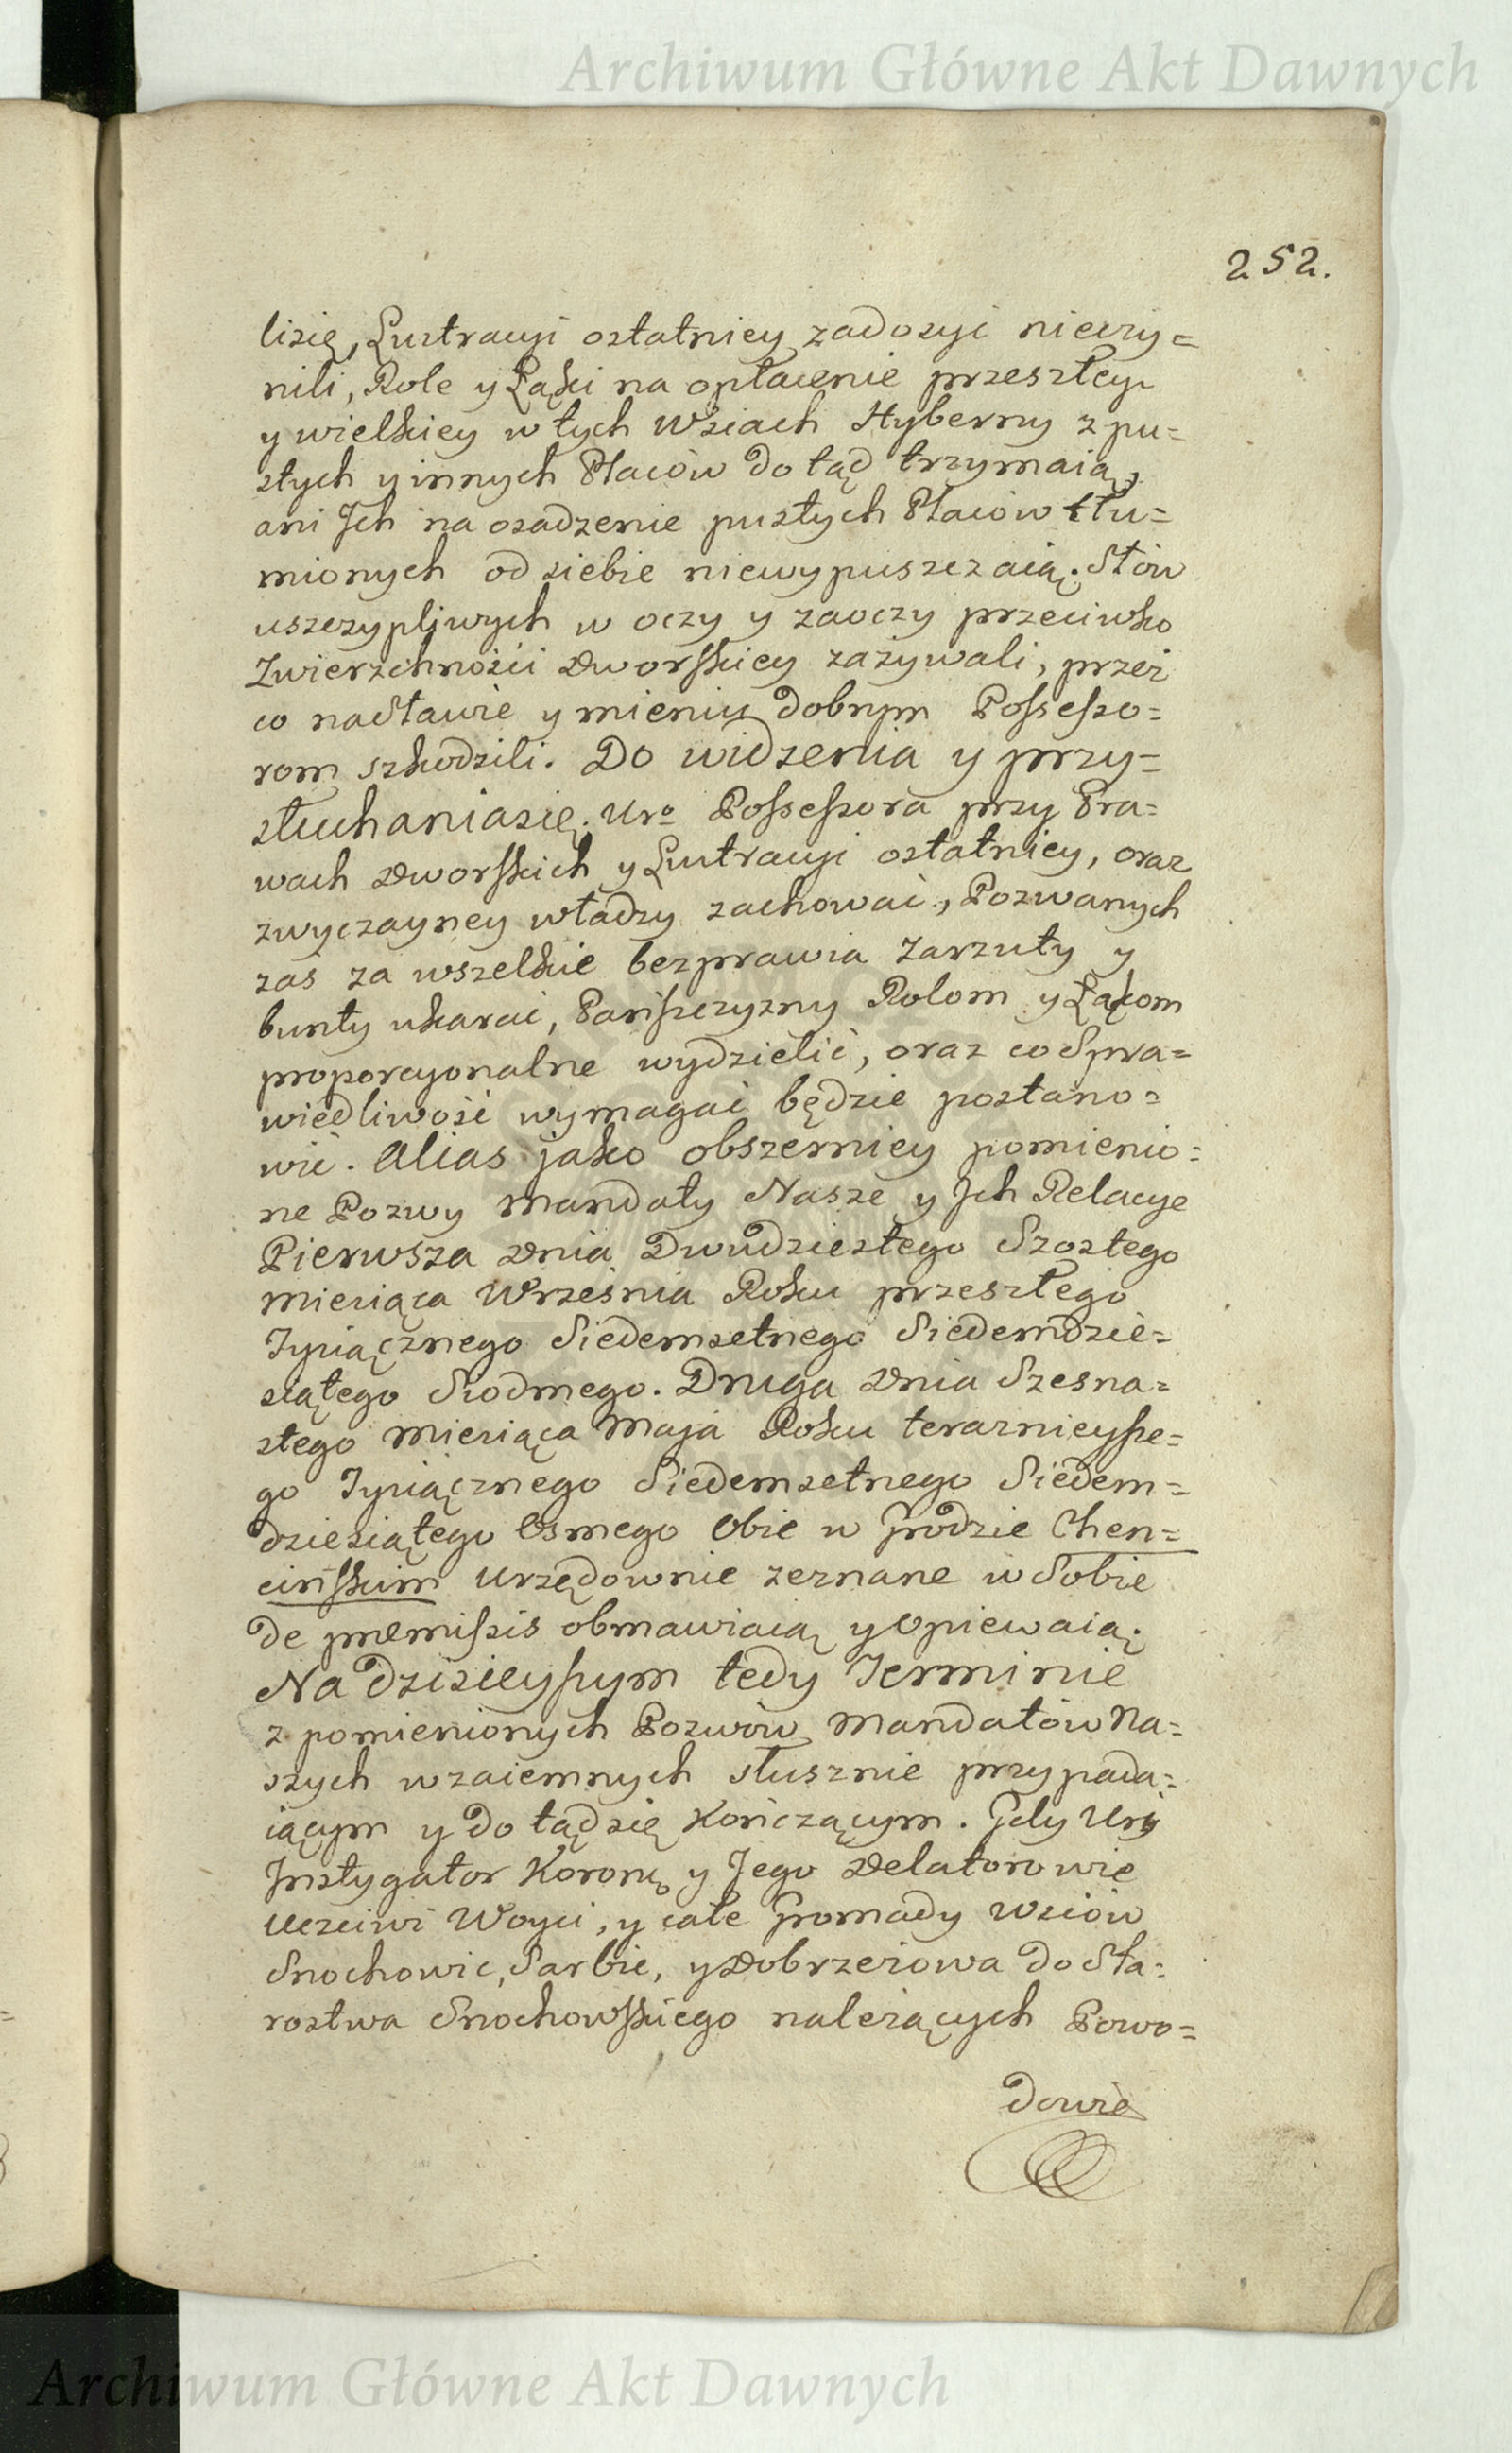 Archiwum Główne Akt Dawnych
252.
lisię, Lustracyi ostatniey zadosyć nieczy=
nili, Role y Łąki na opłacenie przeszłey
y wielkiey w tych Wsiach Hyberny z pu=
stych y innych Placów do tąd trzymaią,
ani Jch na osadzenie pustych Placow tłu=
mionych od siebie niewypuszczaią. Słów
uszczypliwych w oczy y zaoczy przeciwko
Zwierzchności Dworskiey zażywali, przez
co nasławie y mieniu dobrym Possesso=
rom szkodzili. Do widzenia y przy=
słuchaniasię. Uro Possessora przy Pra=
wach Dworskich y Lustracyi ostatniey, oraz
zwyczayney władzy zachować, Pozwanych
zaś za wszelkie bezprawia Zarzuty y
bunty ukarać, Pańszczyzny Rolom y Łąkom
proporcyonalne wydzielić, oraz co Spra=
wiedliwość wymagać będzie postano=
wić. Alias jako obszerniey pomienio=
ne Pozwy Mandaty Nasze y Jch Relacye
Pierwsza Dnia Dwudziestego Szostego
Miesiąca Września Roku przeszłego
Tysiącznego Siedemsetnego Siedemdzie=
siątego Siodmego. Druga Dnia Szesna=
stego Miesiąca Maja Roku terazniejsze=
go Tysiącznego Siedemsetnego Siedem=
dziesiątego Osmego Obie w Grodzie Chen=
cińskim Urzędownie zeznane w Sobie
de præmissis obmawiaią y Opiewaią.
Na dzisieyszym tedy Terminie
z pomienionych Pozwów Mandatów Na=
szych wzaiemnych słusznie przypada=
iącym y do tądsię Kończącym. Gdy Urŷ
Jnstygator Koronŷ y Jego Delatorowie
Uczciwi Woyci, y całe Gromady Wsiów
Snochowic, Sarbic, y Dobrzeszowa do Sta=
rostwa Snochowskiego należących Powo=
dowie
Archiwum Główne Akt Dawnych